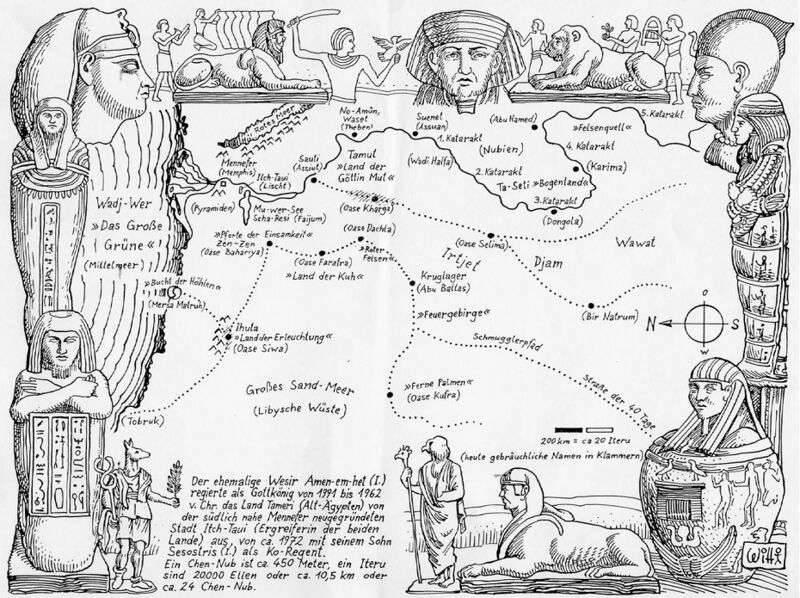 Rotes Meer
Mennefer
(Memphis)
Itch-Taui
(Lischt)
Sauti
(Assiut)
No-Amûn,
Waset
(Theben)
Suenet
(Assuan)
(Abu Hamed)
5. Katarakt
Tamut
»Land der
Göttin Mut«
1. Katarakt
(Wadi Halfa)
(Nubien)
»Felsenquell«
4. Katarakt
(Karima)
2. Katarakt
Ta-Seti »Bogenland«
3. Katarakt
(Dongola)
Wadj-Wer
»Das Große
Grüne«
(Mittelmeer)
(Pyramiden)
Mu-wer-See
Scha-Resi (Faijum)
(Oase Kharga)
»Pforte der Einsamkeit«
Zen-Zen
(Oase Bahariya)
(Oase Dachla)
(Oase Farafra)
»Roter
Felsen«
»Land der Kuh«
(Oase Selima)
Irtjet
Djam
Wawat
»Bucht der Höhlen«
(Mersa Matruh)
Kruglager
(Abu Ballas)
(Bir Natrum)
O
N
S
W
Ihuta
»Land der Erleuchtung«
(Oase Siwa)
»Feuergebirge«
Schmugglerpfad
Großes Sand-Meer
(Libysche Wüste)
»Ferne Palmen«
(Oase Kufra)
Straße der 40 Tage
(Tobruk)
200 km = ca 20 Iteru
(heute gebräuchliche Namen in Klammern)
Der ehemalige Wesir Amen-em-het (I.)
regierte als Gottkönig von 1991 bis 1962
v. Chr. das Land Tameri (Alt-Ägypten) von
der südlich nahe Mennefer neugegründeten
Stadt Itch-Taui (Ergreiferin der beiden
Lande) aus, von ca. 1972 mit seinem Sohn
Sesostris (I.) als Ko-Regent.
Ein Chen-Nub ist ca. 450 Meter, ein Iteru
sind 20000 Ellen oder ca. 10,5 km oder
ca. 24 Chen-Nub.